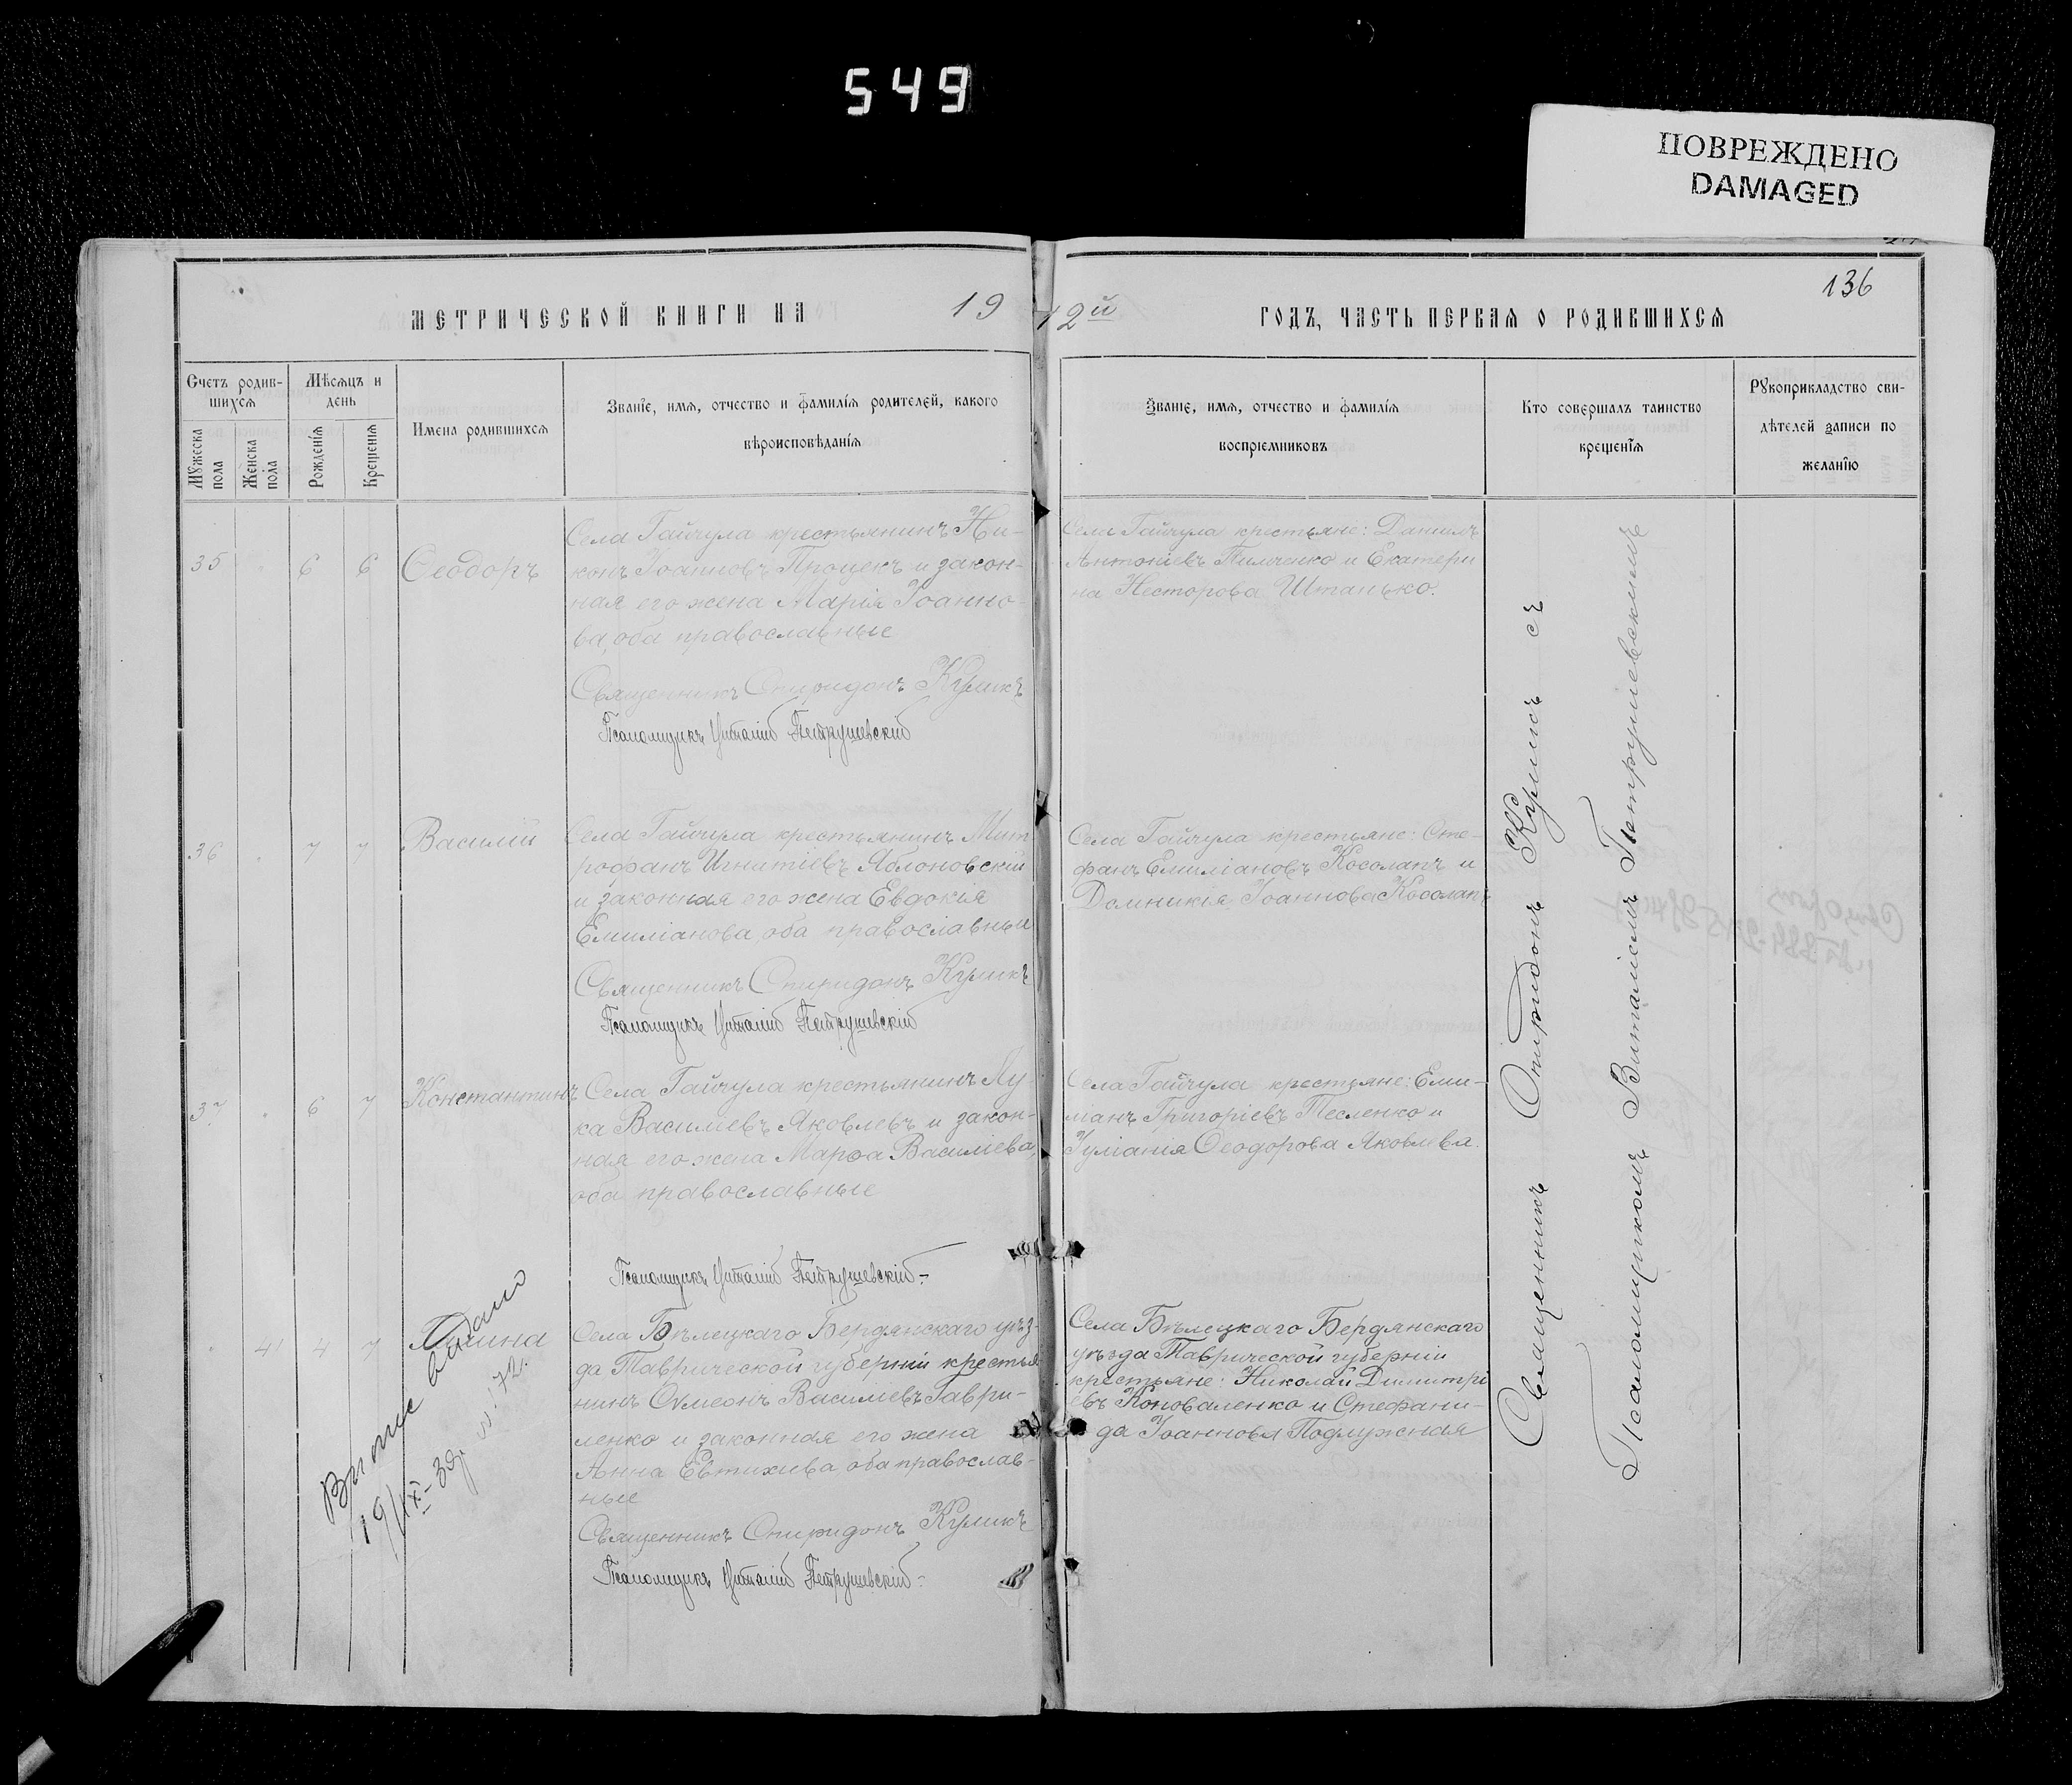 549
ПОВРЕЖДЕНО
DAMAGED
136
МЕТРИЧЕСКОЙ КНИГИ НА 19
12й ГОДЪ, ЧАСТЬ ПЕРВАЯ О РОДИВШИХСЯ
Счетъ родив-
шихся
Мужеска пола
Женска пола
Мѣсяцъ и
день
Рожденія
Крещенія
Имена родившихся
Званіе, имя, отчество и фамилія родителей, какого
вѣроисповѣданія
Званіе, имя, отчество и фамилія
воспріемниковъ
Кто совершалъ таинство
крещенія
Рукоприкладство сви-
дѣтелей записи по
желанію
35 " 6 6 Ѳеодоръ
Села Гайчула крестьянинъ Ни-
конъ Іоанновъ Процекъ и закон-
ная его жена Марія Іоанно-
ва, оба православные
Священникъ Спиридонъ Куликъ
Псаломщикъ Виталій Петрушевскій
Села Гайчула крестьяне: Даниилъ
Антоніевъ Пилченко и Екатери
на Несторова Штанько.
36 " 7 7 Василій
Села Гайчула крестьянинъ Мит
рофанъ Игнатіевъ Яблоновскій
и законная его жена Евдокія
Емиліанова, оба православныи
Священникъ Спиридонъ Куликъ
Псаломщикъ Виталій Петрушевскій
Села Гайчула крестьяне: Сте-
фанъ Емиліановъ Косолапъ и
Домникія Іоаннова Косолапъ
37 " 6 7 Константинъ
Села Гайчула крестьянинъ Лу-
ка Василіевъ Яковлевъ и закон-
ная его жена Марѳа Василіева,
оба православные
Псаломщикъ Виталій Петрушевскій
Села Гайчула крестьяне: Еми-
ліанъ Григоріевъ Тесленко и
Іуліанія Ѳеодорова Яковлева.
" 41 4 7
Села Бѣлецкаго Бердянскаго уѣз-
да Таврической губерніи крестья
нинъ Сѵмеонъ Василіевъ Гаври-
ленко и законная его жена
Анна Евтихиева оба православ-
ные
Священникъ Спиридонъ Куликъ
Псаломщикъ Виталій Петрушевскій
Села Бѣлецкаго Бердянскаго
уѣзда Таврической губерніи
крестьяне: Николай Димитрі
евъ Коноваленко и Стефани-
да Іоаннова Подлужная
видано
19/IX-39р.
Священникъ Спиридонъ Куликъ съ
Псаломщикомъ Виталіемъ Петрушевскимъ